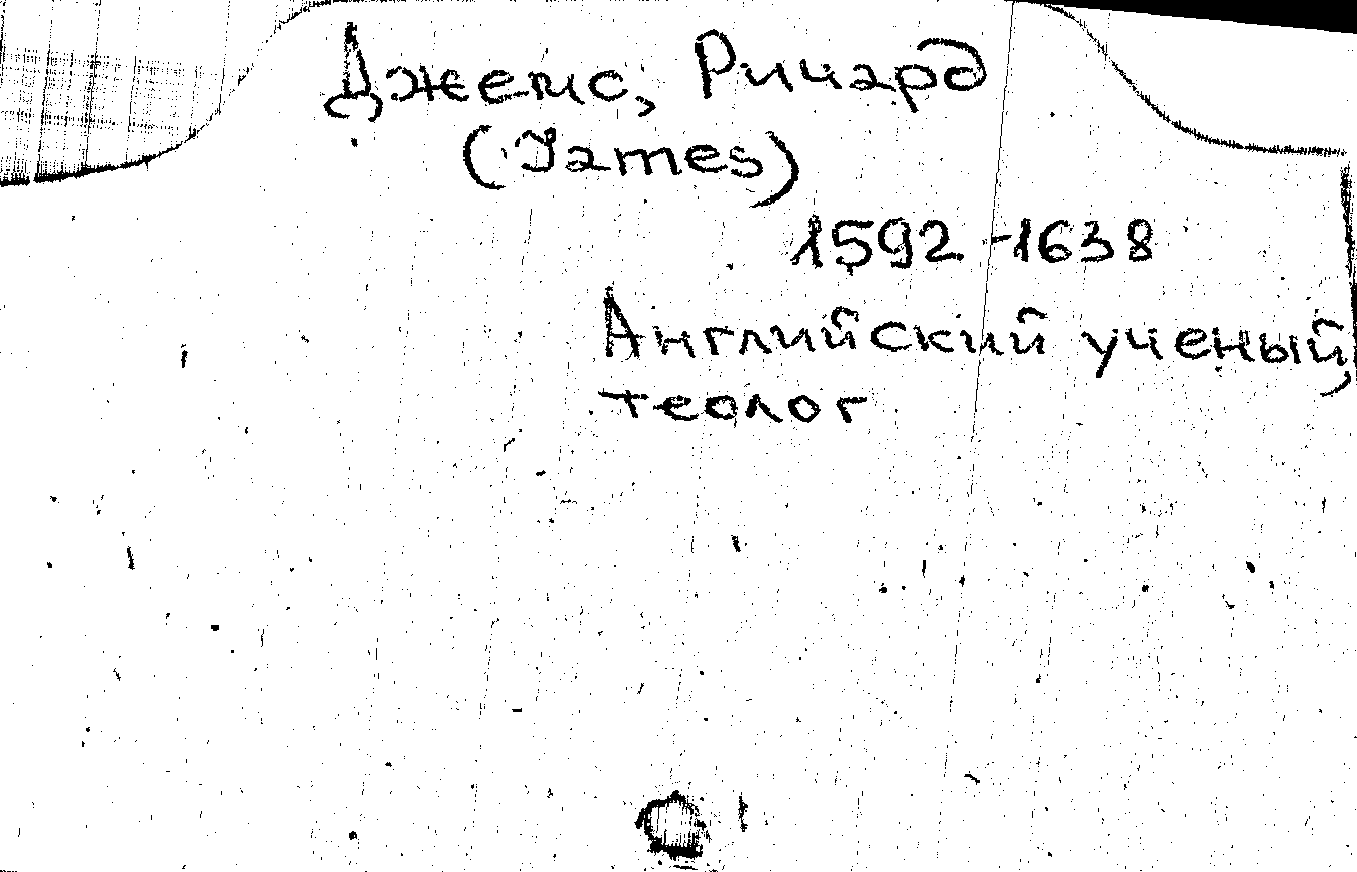 Джемс, Ричард
(James)
1592-1638
Английский ученый,
теолог